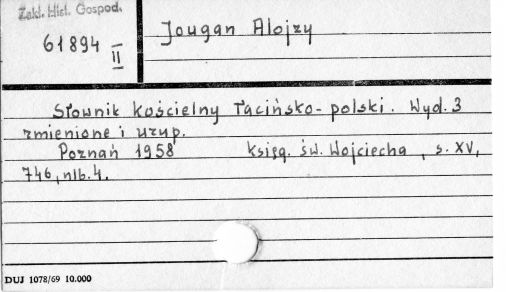 Zakł. Hist. Gospod.
61894
II
Jougan Alojzy
Słownik kościelny łacińsko-polski. Wyd. 3
zmienione i uzup.
Poznań 1958 księg. św. Wojciecha, s. XV,
746, nlb. 4.
DUJ 1078/69 10.000